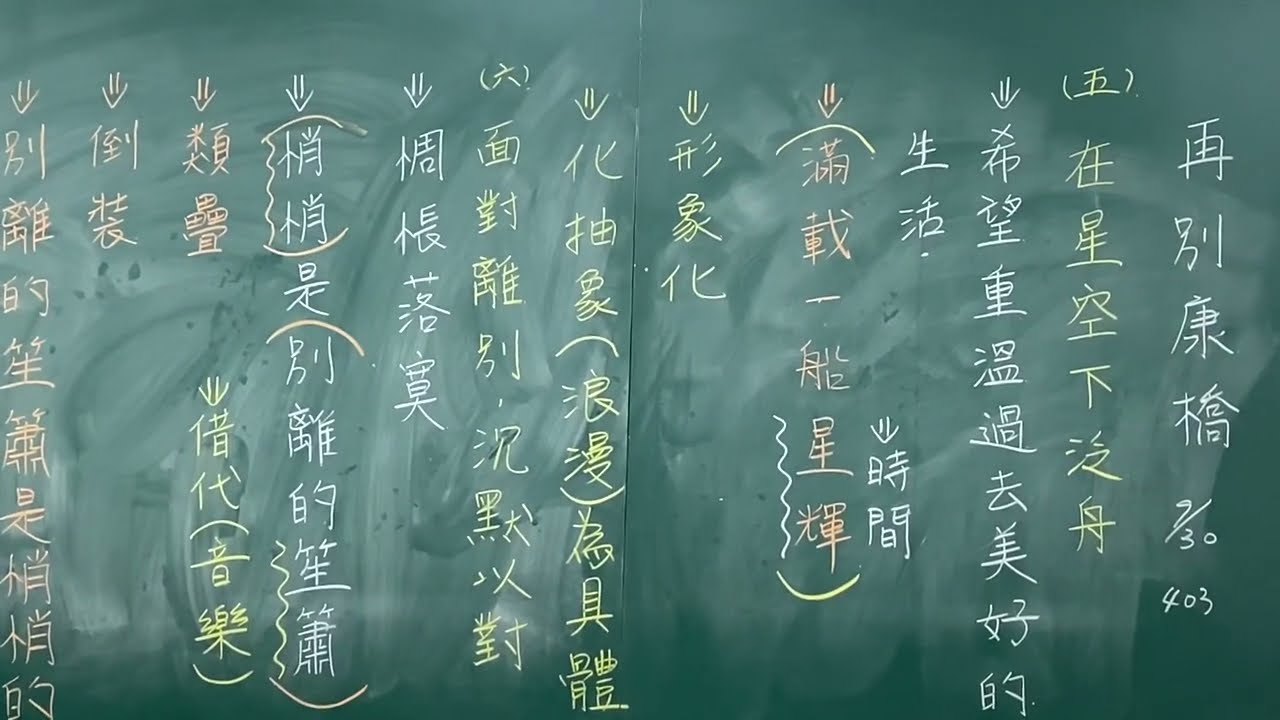 再別康橋 9/30 403
(五) 在星空下泛舟
⇒希望重溫過去美好的
生活
⇒(滿載一船星輝)
⇒時間
⇒形象化
⇒化抽象(浪漫)為具體
(六) 面對離別，沉默以對
⇒惆悵落寞
⇒(悄悄)是(別離的笙簫)
⇒類疊
⇒借代(音樂)
⇒倒裝
⇒別離的笙簫是悄悄的